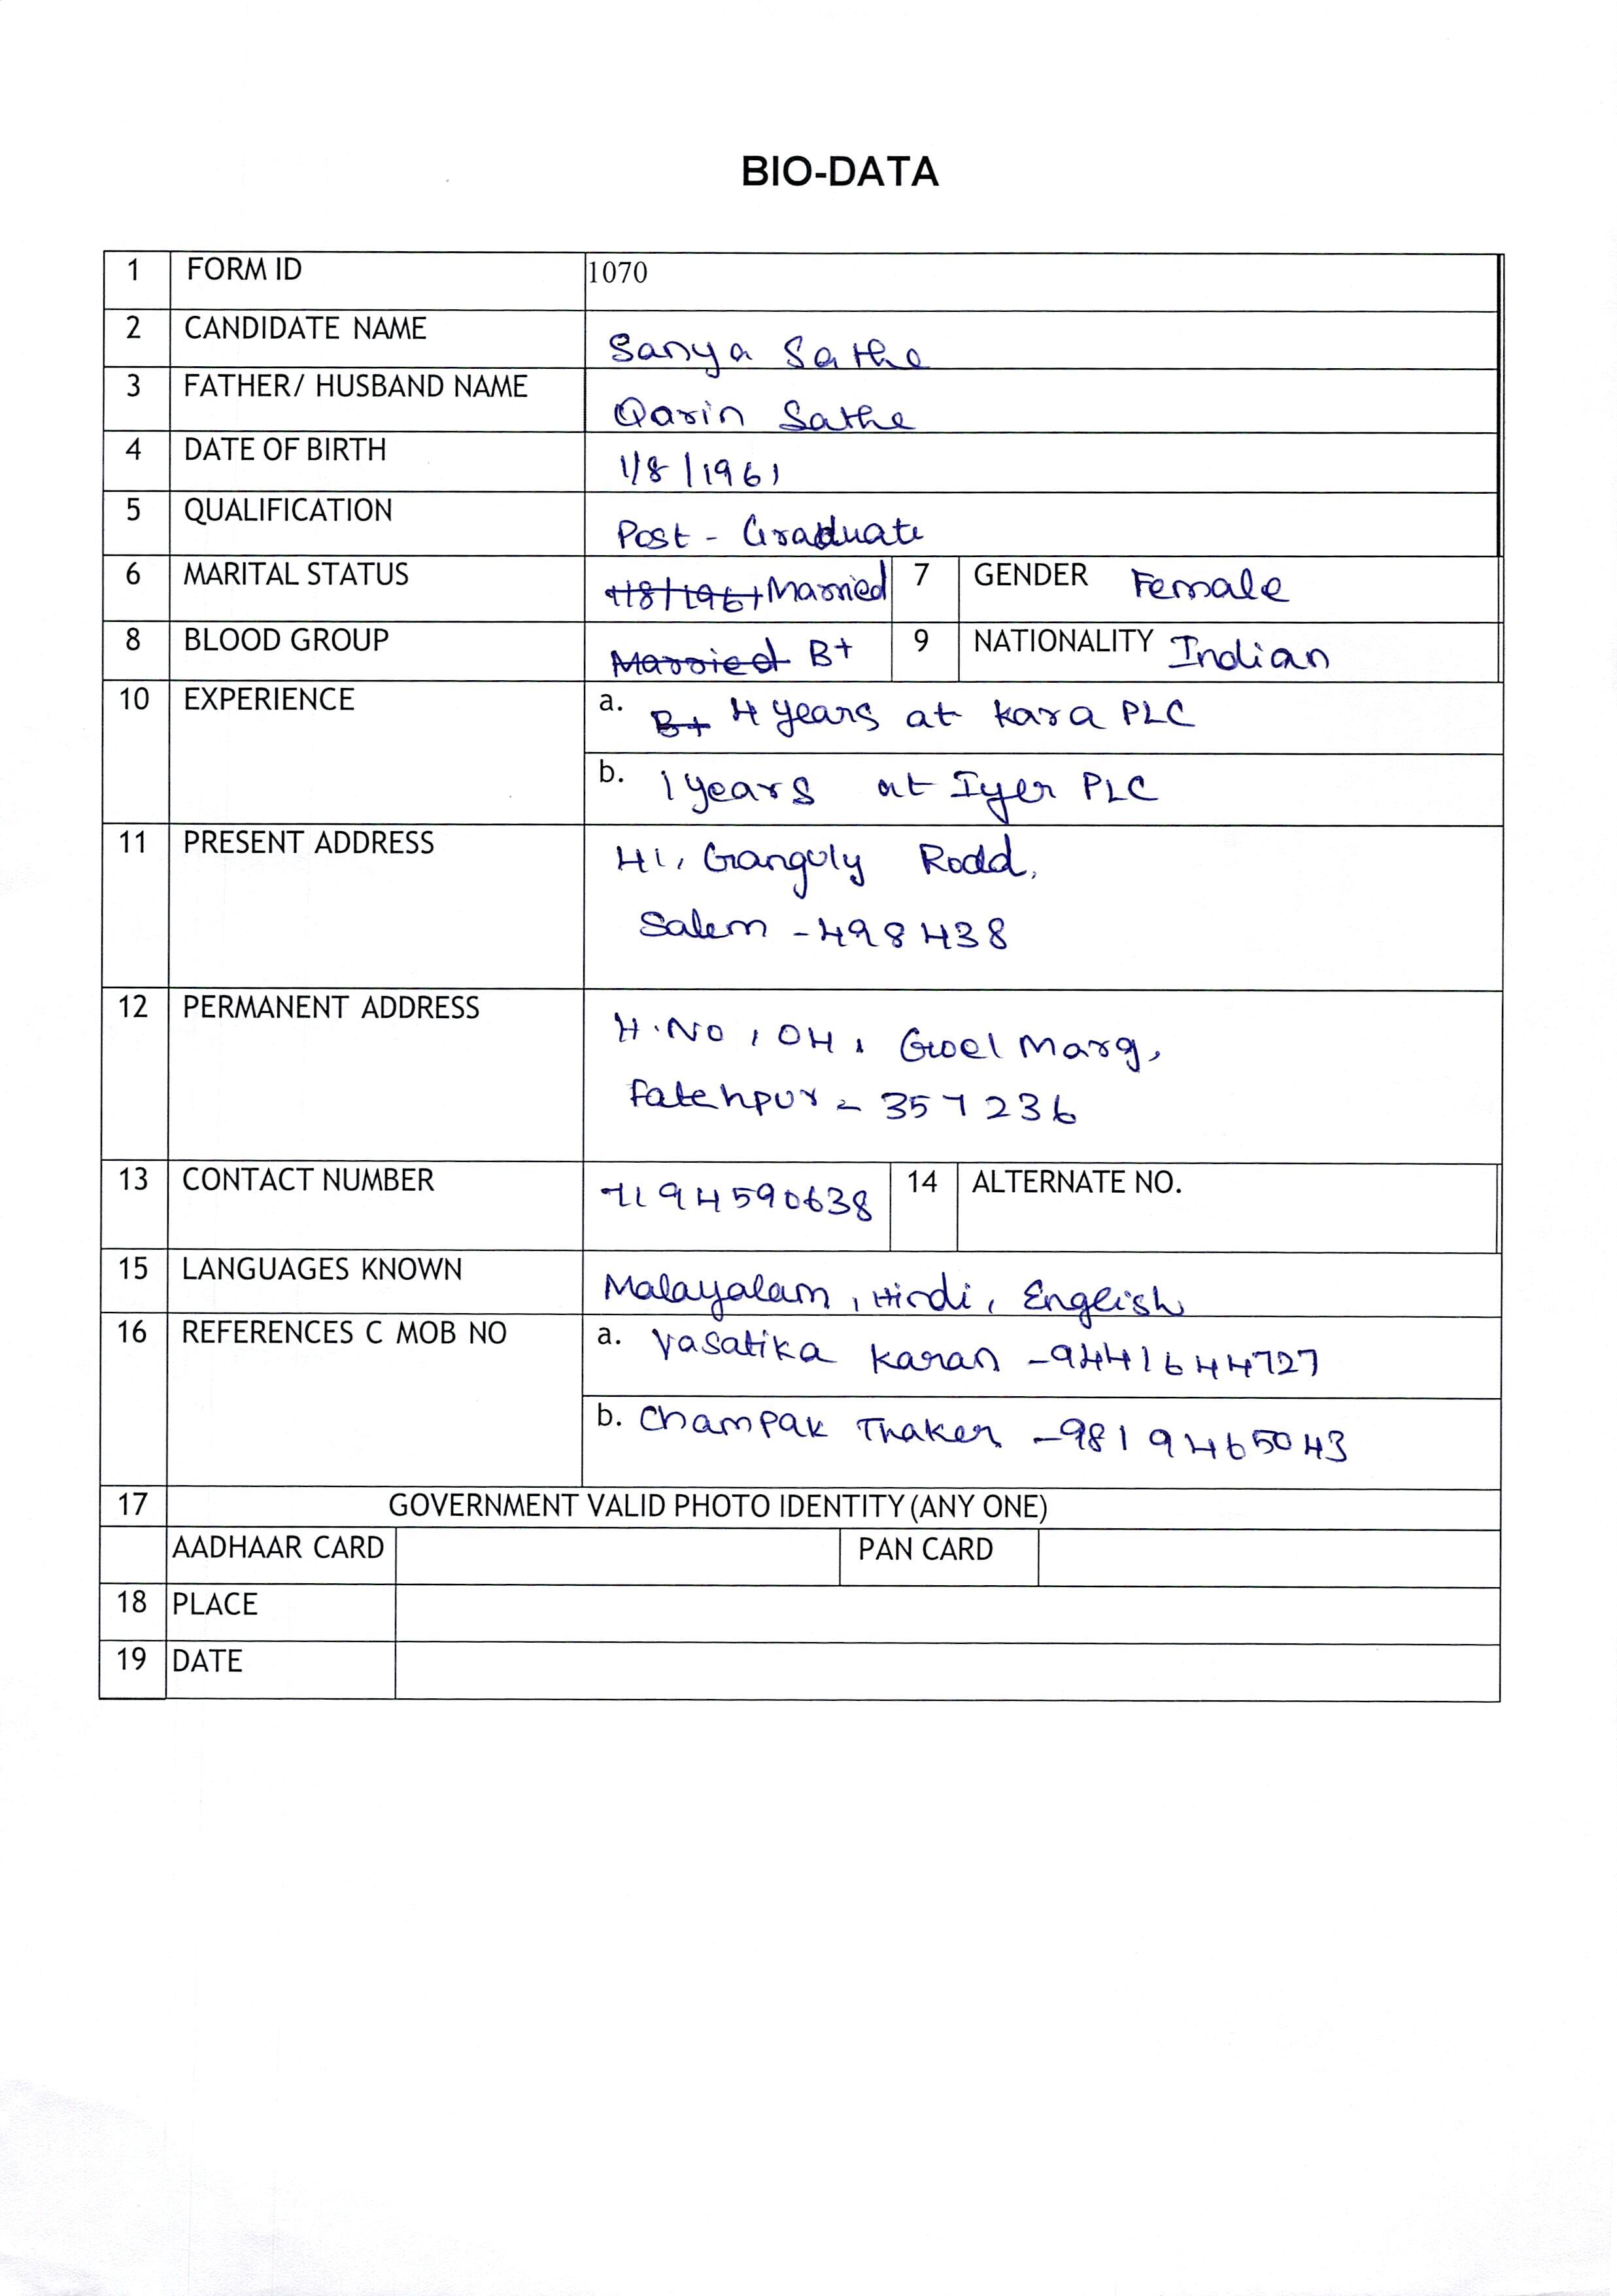 BIO-DATA
1 FORM ID 1070
2 CANDIDATE NAME Sanya Sathe
3 FATHER/ HUSBAND NAME Qarin Sathe
4 DATE OF BIRTH 1/8/1961
5 QUALIFICATION Post - Graduate
6 MARITAL STATUS 1/8/1961 Married 7 GENDER Female
8 BLOOD GROUP Married B+ 9 NATIONALITY Indian
10 EXPERIENCE a. B+ 4 years at Kara PLC
b. 1 years at Iyer PLC
11 PRESENT ADDRESS 41, Ganguly Road,
Salem - 498438
12 PERMANENT ADDRESS H.No, 04, Goel Marg,
Fatehpur - 357236
13 CONTACT NUMBER 7194590638 14 ALTERNATE NO.
15 LANGUAGES KNOWN Malayalam, Hindi, English
16 REFERENCES C MOB NO a. Vasatika Karan - 9441644727
b. Champak Thaker - 9819465043
17 GOVERNMENT VALID PHOTO IDENTITY (ANY ONE)
AADHAAR CARD PAN CARD
18 PLACE
19 DATE